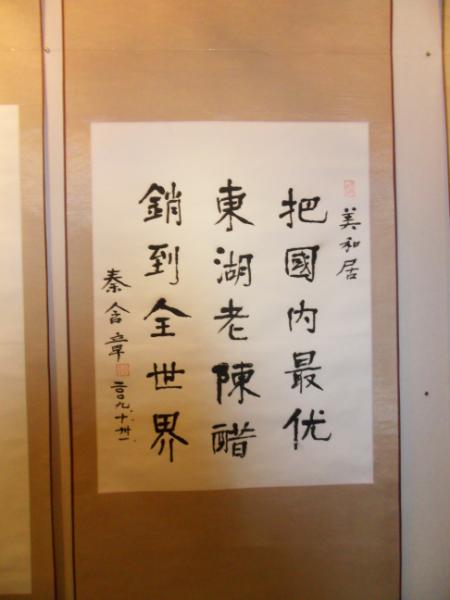 美和居
把國内最优
東湖老陳醋
銷到全世界
秦含章
二〇〇九.十.卅一